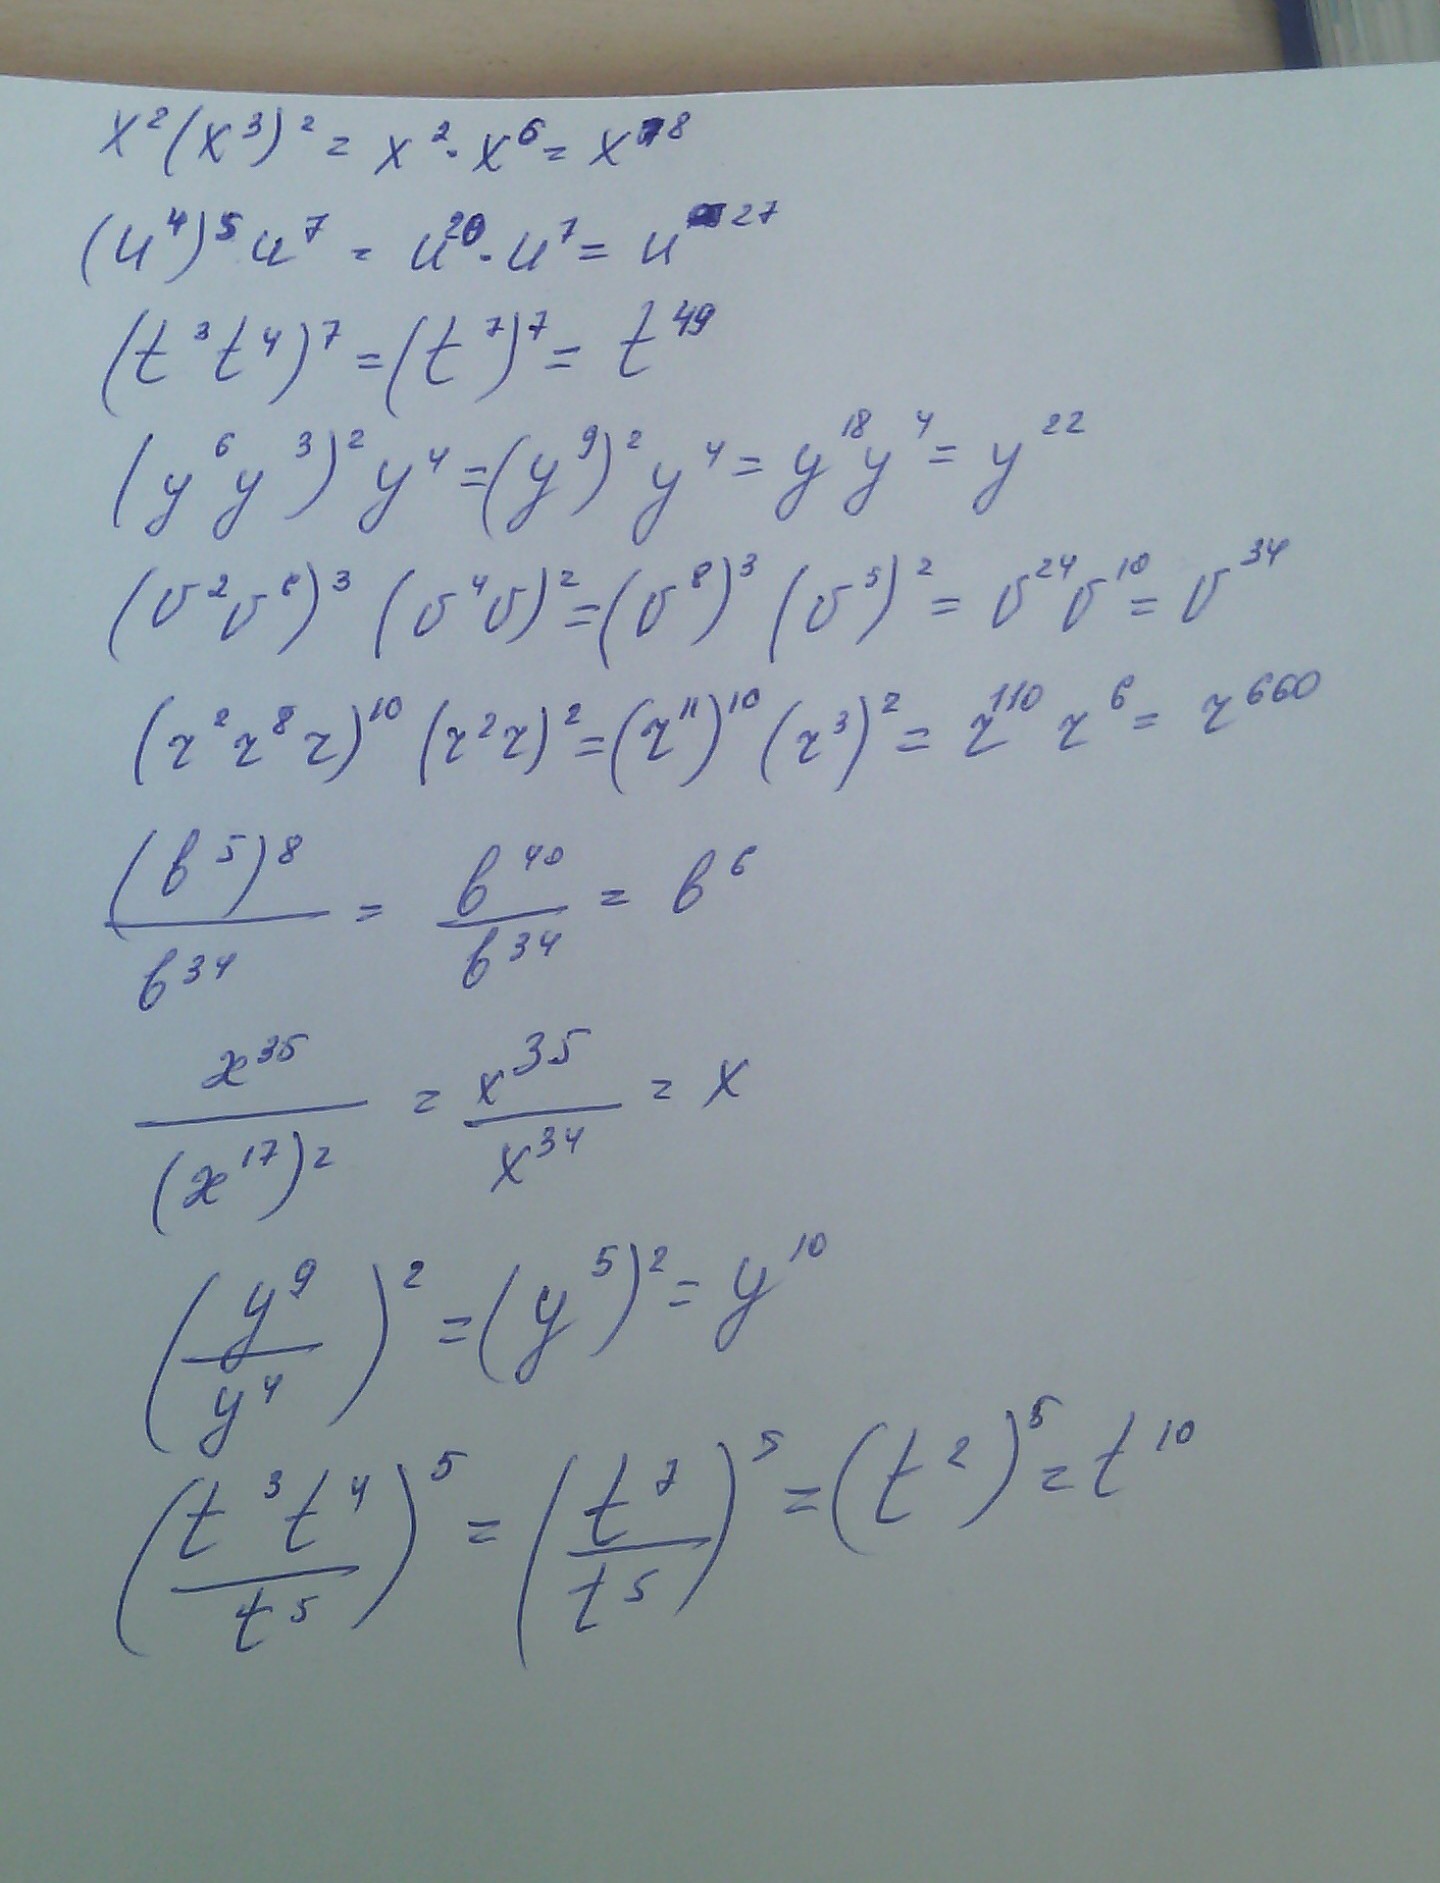 x²(x³)² = x²·x⁶ = x⁸
(u⁴)⁵u⁷ = u²⁰·u⁷ = u²⁷
(t³t⁴)⁷ = (t⁷)⁷ = t⁴⁹
(y⁶y³)²y⁴ = (y⁹)²y⁴ = y¹⁸y⁴ = y²²
(v²v⁶)³(v⁴v)² = (v⁸)³(v⁵)² = v²⁴v¹⁰ = v³⁴
(z²z⁸z)¹⁰(z²z)² = (z¹¹)¹⁰(z³)² = z¹¹⁰z⁶ = z⁶⁶⁰
(b⁵)⁸/b³⁴ = b⁴⁰/b³⁴ = b⁶
x³⁵/(x¹⁷)² = x³⁵/x³⁴ = x
(y⁹/y⁴)² = (y⁵)² = y¹⁰
(t³t⁴/t⁵)⁵ = (t⁷/t⁵)⁵ = (t²)⁵ = t¹⁰